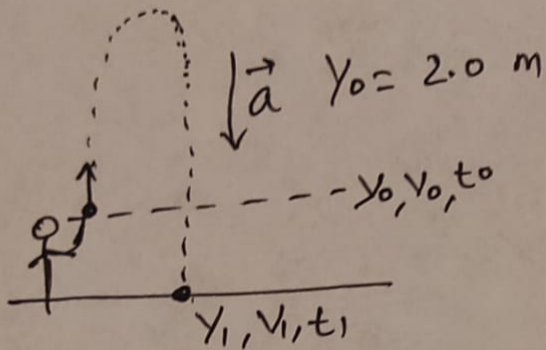 a⃗ y₀ = 2.0 m
y₀, v₀, t₀
y₁, v₁, t₁